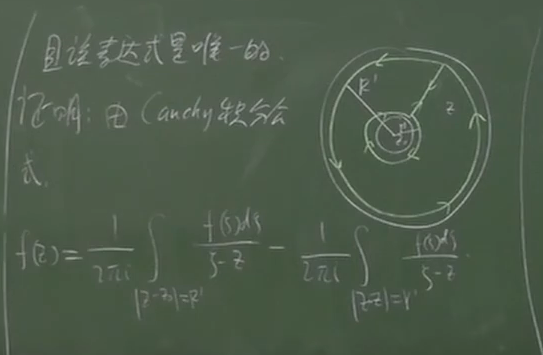 且该表达式是唯一的.
证明: 由 Cauchy 积分公
式.
f(z) = \frac{1}{2πi} \int_{|z-z_0|=R'} \frac{f(ζ)dζ}{ζ-z} - \frac{1}{2πi} \int_{|z-z_0|=r'} \frac{f(ζ)dζ}{ζ-z}
R'
z